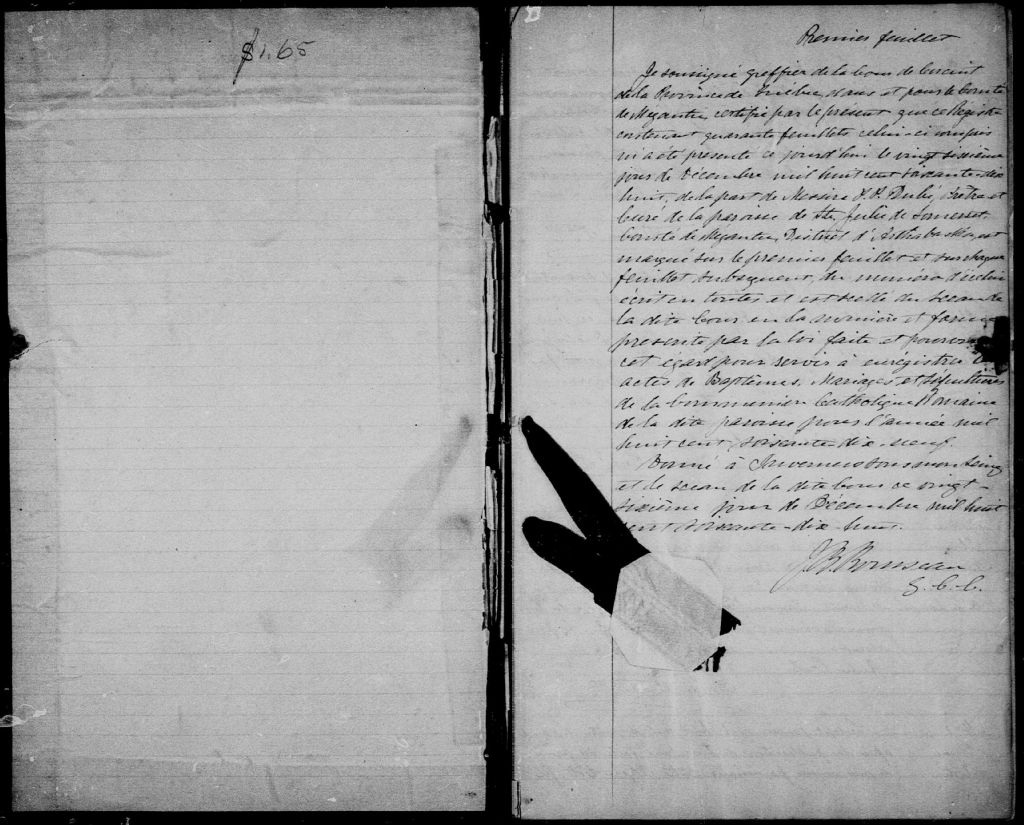 $1.65
Premier feuillet
Je soussigné greffier de la Cour de Circuit
de la Province de Québec, dans et pour le Comté
de Mégantic, certifie par le présent que ce Régistre
contenant quarante feuillets celui-ci compris
m'a été présenté ce jourd'hui le vingt sixième
jour de Décembre mil huit cent soixante-dix
huit, de la part de Messire Dubé, Prêtre et
Curé de la paroisse de Ste. Julie de Somerset,
Comté de Mégantic, District d'Arthabaska, est
marqué sur le premier feuillet et sur chaque
feuillet subséquent, du numéro d'icelui
écrit en toutes et est scellé du sceau de
la dite Cour en la manière et forme
prescrite par la loi faite et pourvue
cet égard pour servir à enrégistrer
actes de Baptêmes, Mariages, et Sépultures
de la Communion Catholique Romaine
de la dite paroisse pour l'année mil
huit cent soixante-dix-neuf.
Donné à Inverness sous mon seing
et le sceau de la dite Cour ce vingt-
sixième jour de Décembre mil huit
cent soixante-dix huit.
J. B. Rousseau
G. C. C.